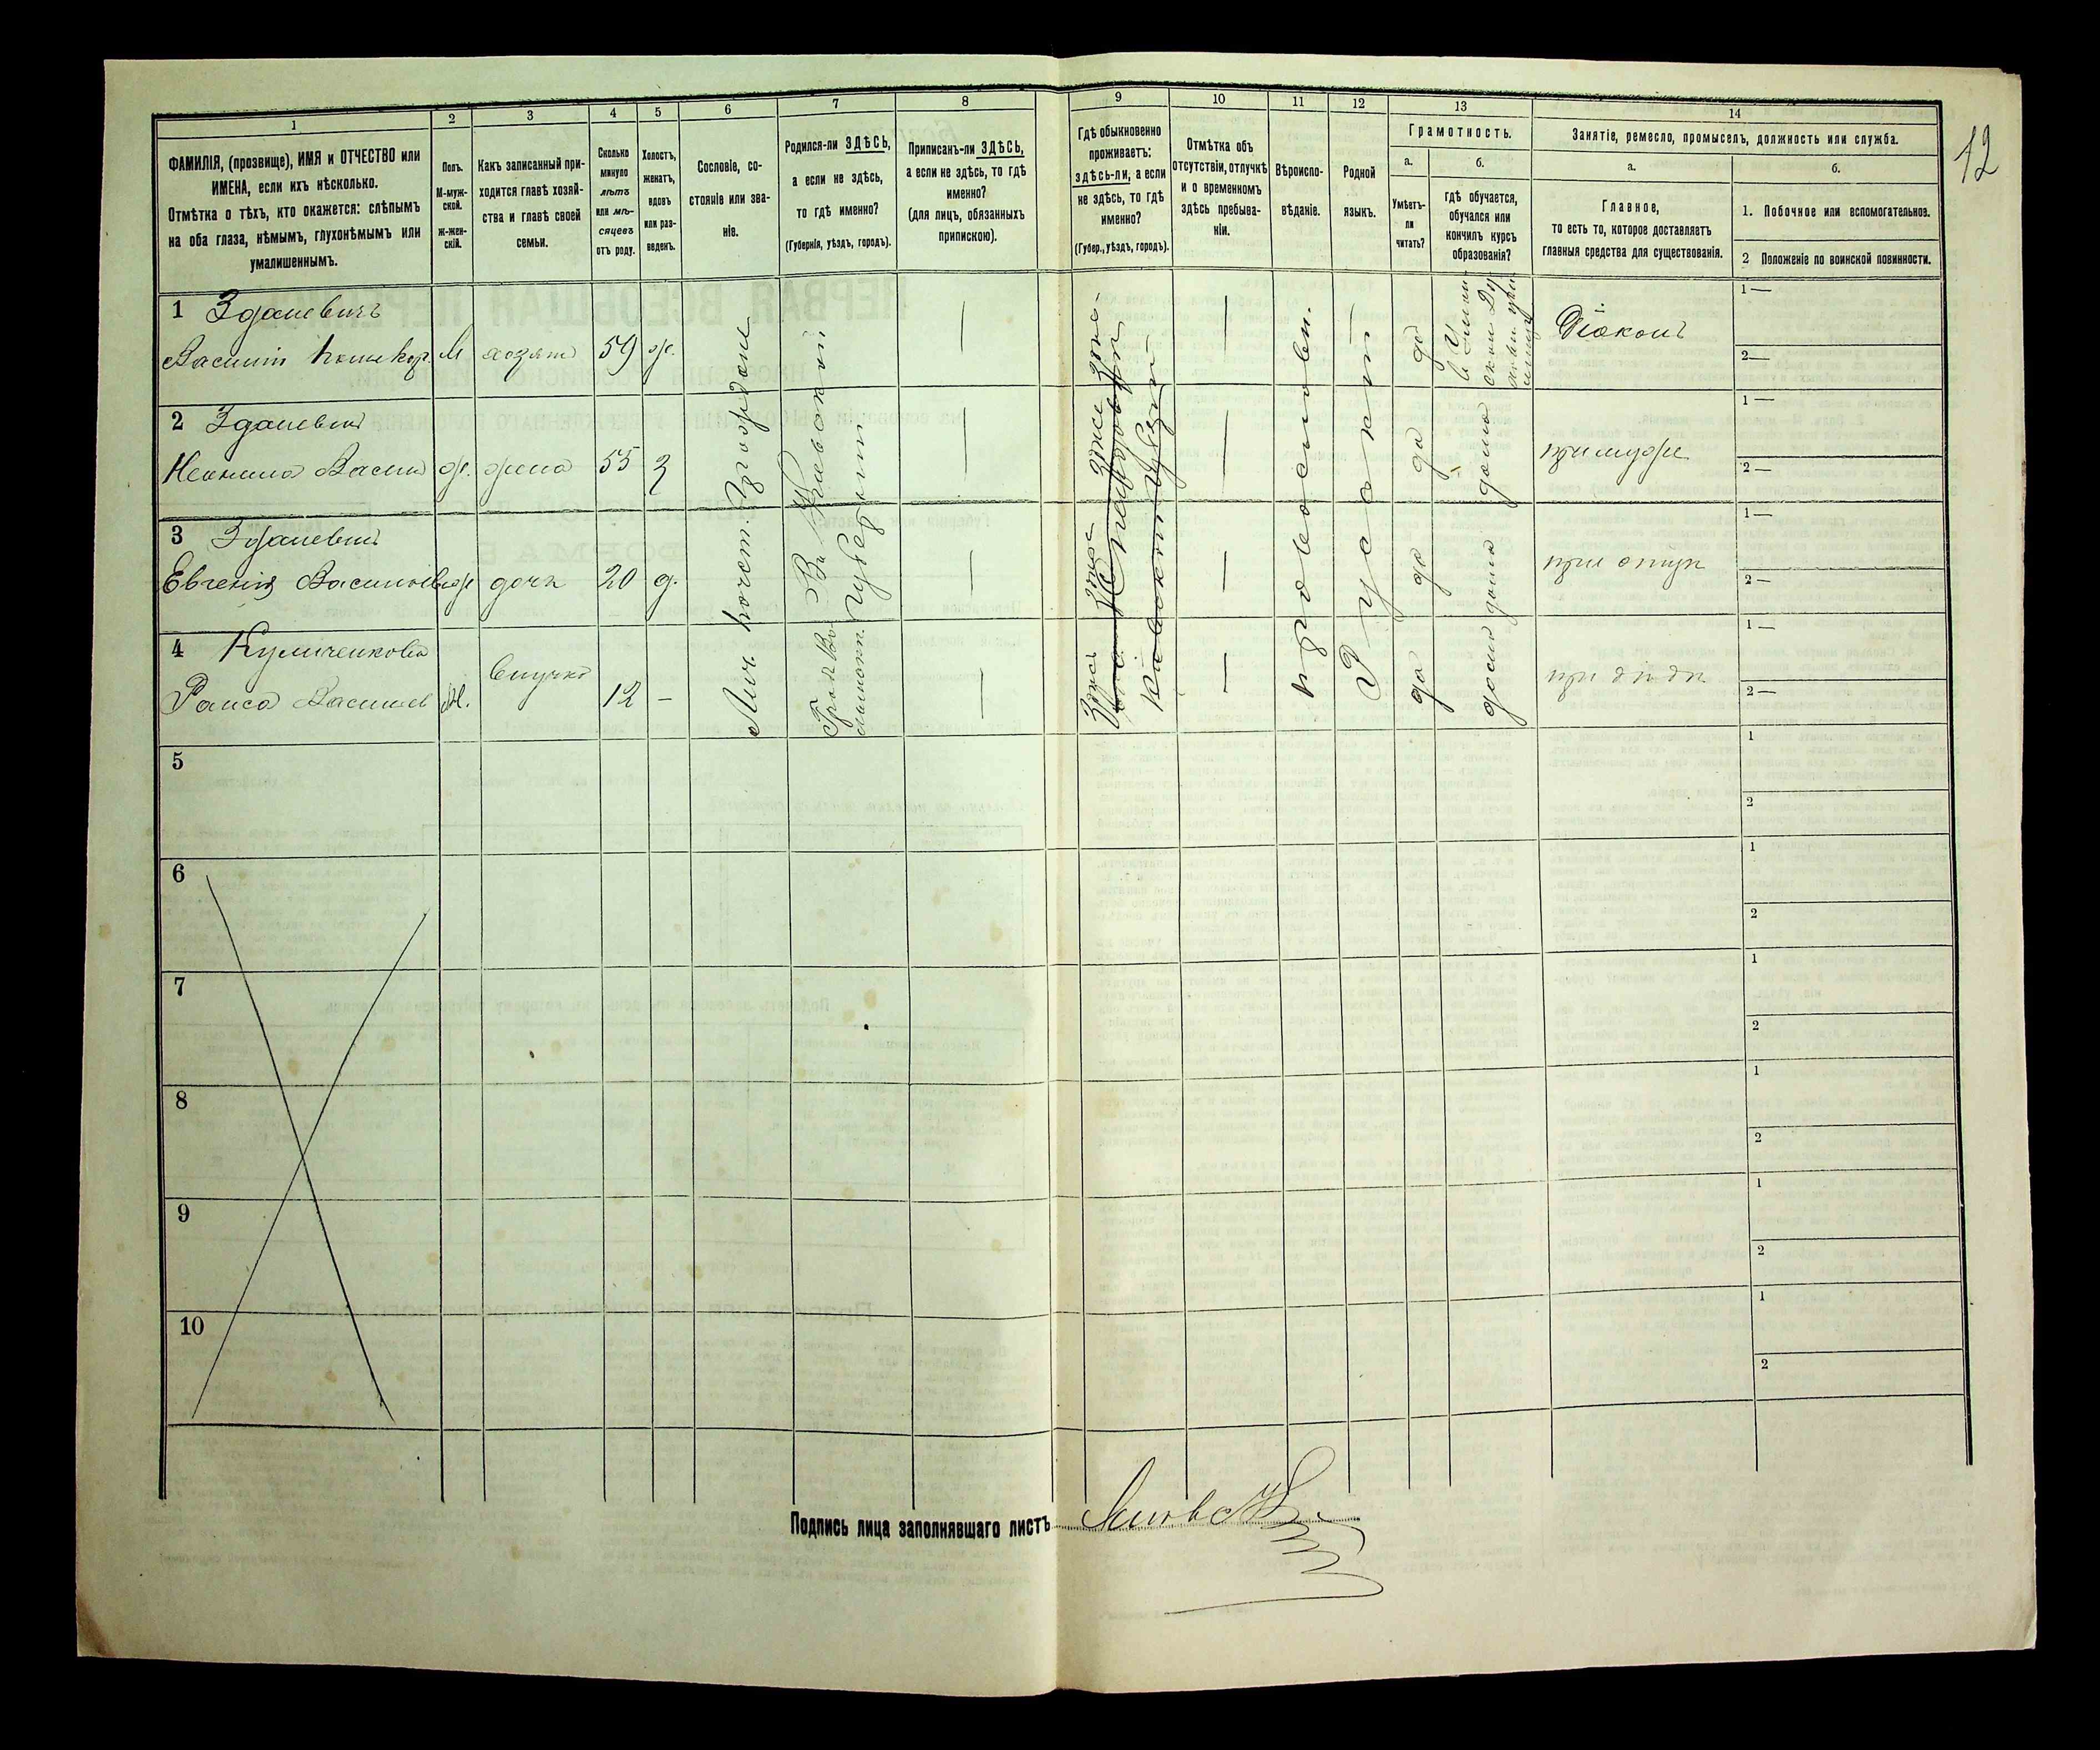 12
1 2 3 4 5 6 7 8 9 10 11 12 13 14
ФАМИЛІЯ, (прозвище), ИМЯ и ОТЧЕСТВО или
ИМЕНА, если ихъ нѣсколько.
Отмѣтка о тѣхъ, кто окажется: слѣпымъ
на оба глаза, нѣмымъ, глухонѣмымъ или
умалишеннымъ.
Полъ.
М-муж-
ской.
ж-жен-
скій.
Какъ записанный при-
ходится главѣ хозяй-
ства и главѣ своей
семьи.
Сколько
минуло
лѣтъ
или мѣ-
сяцевъ
отъ роду.
Холостъ,
женатъ,
вдовъ
или раз-
веденъ.
Сословіе, со-
стояніе или зва-
ніе.
Родился-ли ЗДѢСЬ,
а если не здѣсь,
то гдѣ именно?
(Губернія, уѣздъ, городъ).
Приписанъ-ли ЗДѢСЬ,
а если не здѣсь, то гдѣ
именно?
(для лицъ, обязанныхъ
припискою).
Гдѣ обыкновенно
проживаетъ:
здѣсь-ли, а если
не здѣсь, то гдѣ
именно?
(Губер., уѣздъ, городъ).
Отмѣтка объ
отсутствіи, отлучкѣ
и о временномъ
здѣсь пребыва-
ніи.
Вѣроиспо-
вѣданіе.
Родной
языкъ.
Грамотность.
а.
Умѣетъ-
ли
читать?
б.
гдѣ обучается,
обучался или
кончилъ курсъ
образованія?
Занятіе, ремесло, промыселъ, должность или служба.
а.
Главное,
то есть то, которое доставляетъ
главныя средства для существованія.
б.
1. Побочное или вспомогательное.
2 Положеніе по воинской повинности.
1 Зданевичъ
Василій
М хозяинъ 59 ж.
да
Діаконъ
1 —
2 —
2 Зданевичъ
ж. жена 55 З
да дома
при мужѣ
1 —
2 —
3 Зданевичъ
Евгенія Васильев
ж дочь 20 д.
да дома
при отцѣ
1 —
2 —
4 Куличенкова
Раиса Васильев
внучка 12 —
да дома
при дѣдѣ
1 —
2 —
Лич. почет. граждане
Въ Кіевской
губерніи
Кіевской губерніи
православн.
Русскій
5 1 2
6 1 2
7 1 2
8 1 2
9 1 2
10 1 2
Подпись лица заполнявшаго листъ